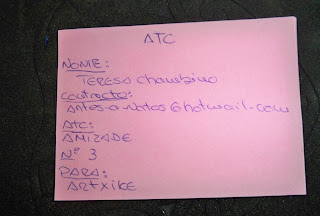 ATC
NOME:
TERESA Chambino
contacto:
Artes-a-Notas@hotmail.com
Atc:
AMIZADE
Nº 3
PARA:
ARTXIKE